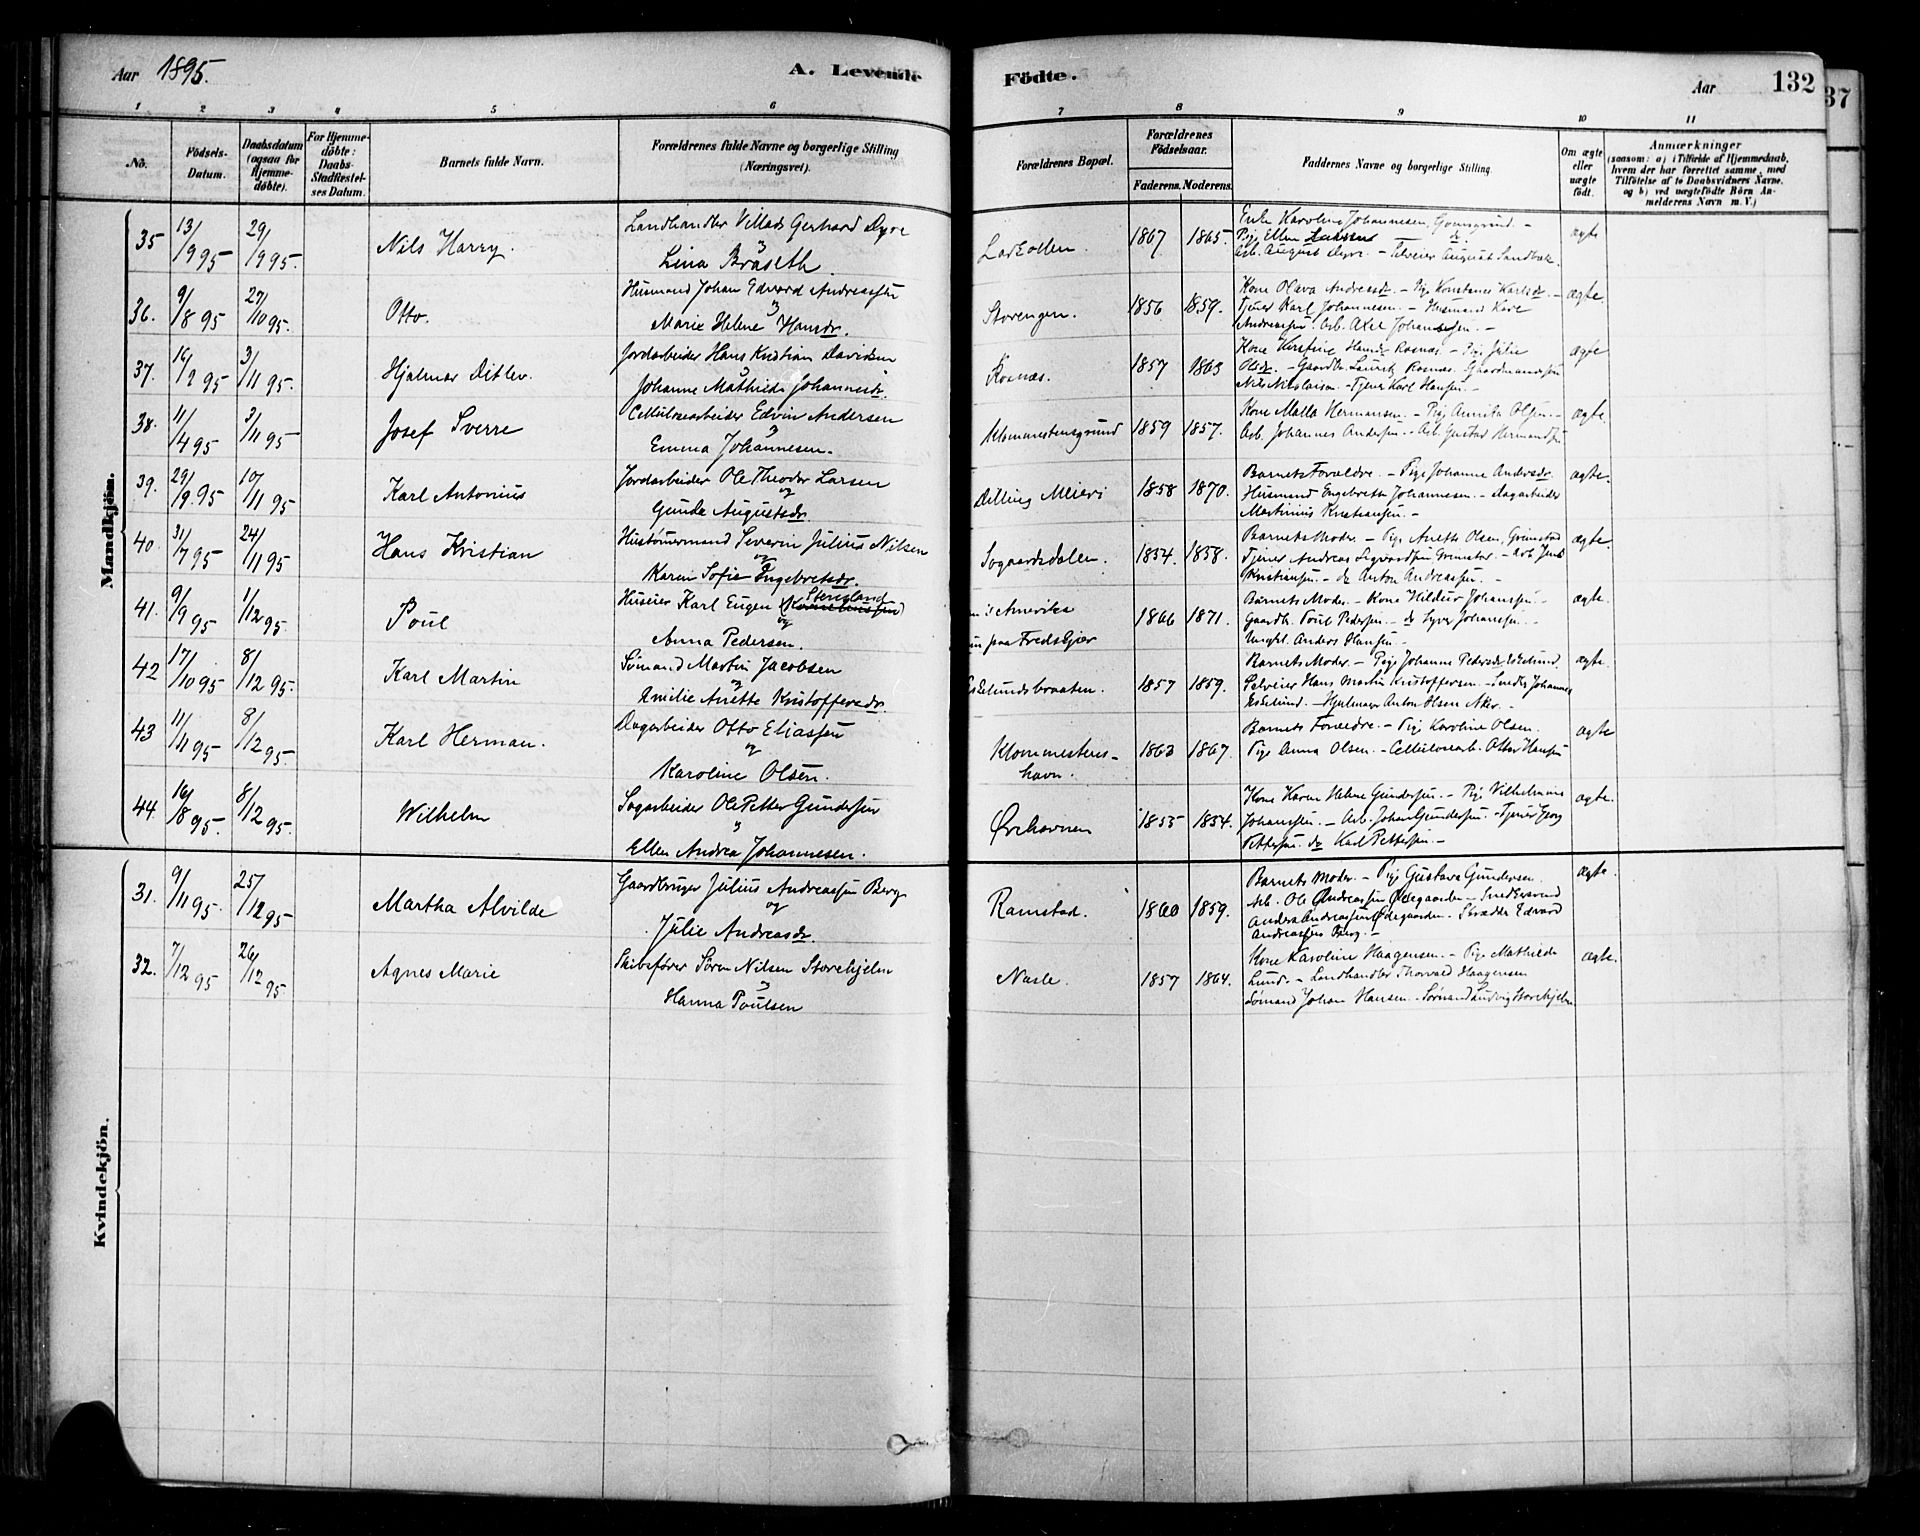 Aar 1895. A. Levende Födte. Aar 132
37
1 2 3 4 5 6 7 8 9 10 11
No. Födsels-Datum. Daabsdatum (ogsaa for Hjemmedöbte). For Hjemmedöbte: Daabs-Stadfæstelses Datum. Barnets fulde Navn. Forældrenes fulde Navne og borgerlige Stilling (Næringsvei). Forældrenes Bopæl. Forældrenes Födselsaar. Faderens. Moderens. Faddernes Navne og borgerlige Stilling. Om ægte eller uægte födt. Anmærkninger
(saasom: a) i Tilfælde af Hjemmedaab,
hvem der har forrettet samme, med
Tilföielse af to Daabsvidners Navne,
og b) ved uægtefödte Börn Anmelderens Navn m. V.)
Mandkjön.
35 13/9 95 29/9 95. Nils Harry. Landhandler Villads Gerhard Dyre
&
Lina Bråseth. Larkollen. 1867 1865. Enke Karoline Johannesen,
Pige Ellen Hansen do
Arb. August Dyre. – Selveier August Sandbæk. ægte
36. 9/8 95 27/10 95. Otto. Husmand Johan Edvard Andreassen
&
Marie Helene Hansdr. Storengen. 1856 1859. Kone Olava Andreasdr. – Pige Konstanse Karlsdr. –
Tjener Karl Johannesen. – Husmand Karl
Andreassen. Arb. Axel Johannesen. – ægte
37. 16/9 95 3/11 95. Hjalmar Ditlev. Jordarbeider Hans Kristian Davidsen
&
Johanne Mathilde Johannesdr. Rosnæs. 1857 1863 Kone Kirstine Hansdr Rosnæs. – Pige Julie
Olsdr. – Gaardbr. Lauritz Rosnæs.
Nils Nikolaisen – Tjener Karl Hansen. – ægte
38. 11/4 95 3/11 95. Josef Sverre Cellulosearbeider Edvin Andersen
&
Emma Johannesen. Klommestensgrund 1859 1857. Kone Malla Hermansen. – Pige Annita Olsen. –
Arb. Johannes Andersen. – Arb. Gustav Hermansen ægte
39. 29/9. 95 10/11 95 Karl Antonius Jordarbeider Ole Theodor Larsen
og
Gunda Augustsdr. Dilling Meieri 1858 1870. Barnets Forældre. – Pige Johanne Andersdr.
Husmand Engebrett Johannesen. – Dagarbeider
Martinius Kristiansen. – ægte.
40. 31/7 95 24/11 95 Hans Kristian Hustømmermand Severin Julius Nilsen
og
Karen Sofie Engebretsdr. Sogaardsdalen. 1854. 1858. Barnets Moder. – Pige Anette Olsen, Grimstad
Tjener Andreas Sigvardsen Grimstad. – Arb. Jens
Kristiansen. – do Anton Andreassen. – ægte.
41. 9/9 95 1/12 95. Poul Huseier Karl Eugen Stensland
og
Anna Pedersen. i Amerika
paa Fredskjær 1866 1871. Barnets Moder – Kone Hildur Johansen. –
Gaardb. Poul Pedersen – do Syver Johansen. –
Ungk. Anders Hansen. – ægte.
42 17/10 95 8/12 95. Karl Martin Sømand Martin Jacobsen
&
Amilie Anette Kristoffersdr. Eskelundsbraaten. 1857 1859. Barnets Moder – Pige Johanne Pedersdr Eskelund.
Selveier Hans Martin Kristoffersen. – Smed Johannes
Eskelund. – Hjulmager Anton Olsen Aker. – ægte.
43 11/11 95 8/12 95 Karl Herman. Dagarbeider Otto Eliassen
og
Karoline Olsen. Klommestens-
havn. 1863 1867. Barnets Forældre. – Pige Karoline Olsen.
Pige Anna Olsen. – Cellulosearb. Ottar Hansen ægte
44. 16/8 95. 8/12 95. Wilhelm Sagarbeider Ole Petter Gundersen
&
Ellen Andrea Johannesen. Ørehavnen 1855 1854. Kone Karen Helene Gundersen. – Pige Vilhelmine
Johansen. – Arb. Johan Gundersen. – Tjener Georg
Pettersen. do Karl Pettersen. – ægte.
Kvindekjön.
31. 9/11 95. 25/12 95 Martha Alvilde Gaardbruger Julius Andreassen Berg
og
Julie Andreasdr. Ramstad. 1860 1859. Barnets Moder. – Pige Gustava Gundersen.
Arb. Ole Andreassen Ødegaarden – Smedesvend
Anders Andreassen Ødegaarden. – Skrædder Edvard
Andreassen Berg. – ægte.
32. 7/12 95 26/12 95. Agnes Marie Skibsfører Søren Nilsen Storehjelm
&
Hanna Poulsen Nasle. 1857 1864. Kone Karoline Haagensen. – Pige Mathilde
Lund. – Landhandler Thorvald Haagensen
Sømand Johan Hansen. – Sømand Ludvig Storehjelm ægte.